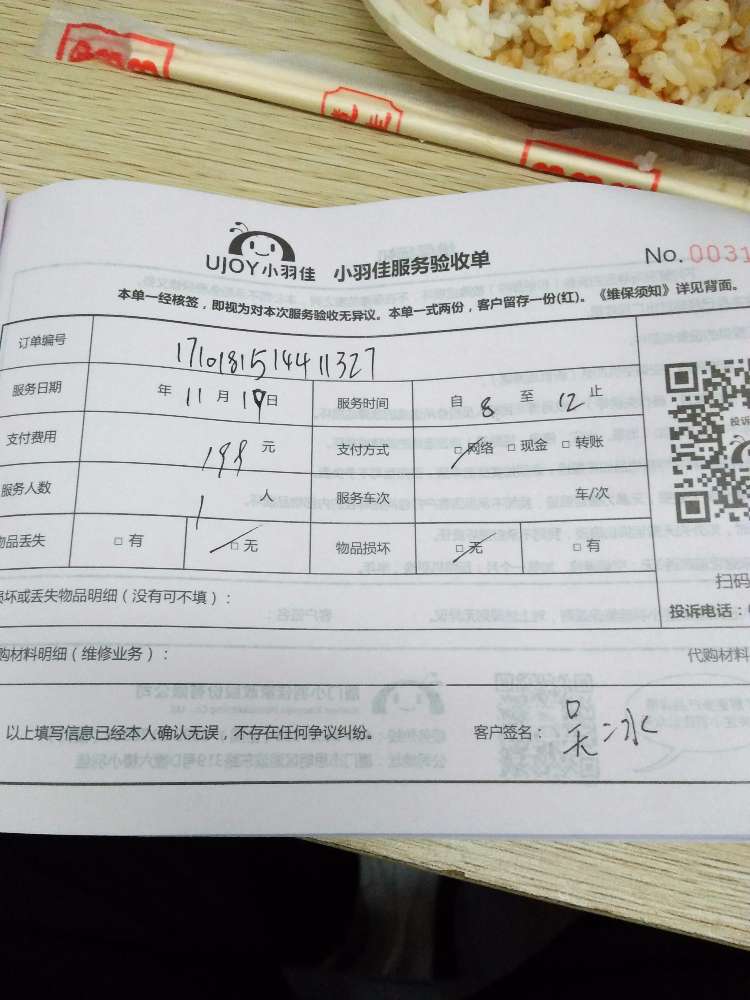 UJOY小羽佳 小羽佳服务验收单 No. 0031
本单一经核签，即视为对本次服务验收无异议。本单一式两份，客户留存一份(红)。《维保须知》详见背面。
订单编号 1710181514411327
服务日期 年 11 月 19 日 服务时间 自 8 至 12 止
支付费用 199 元 支付方式 □网络 □现金 □转账
服务人数 1 人 服务车次 车/次
物品丢失 □有 □无 物品损坏 □无 □有
投诉
扫码
损坏或丢失物品明细（没有可不填）：
投诉电话：
购材料明细（维修业务）： 代购材料
以上填写信息已经本人确认无误，不存在任何争议纠纷。 客户签名：吴冰